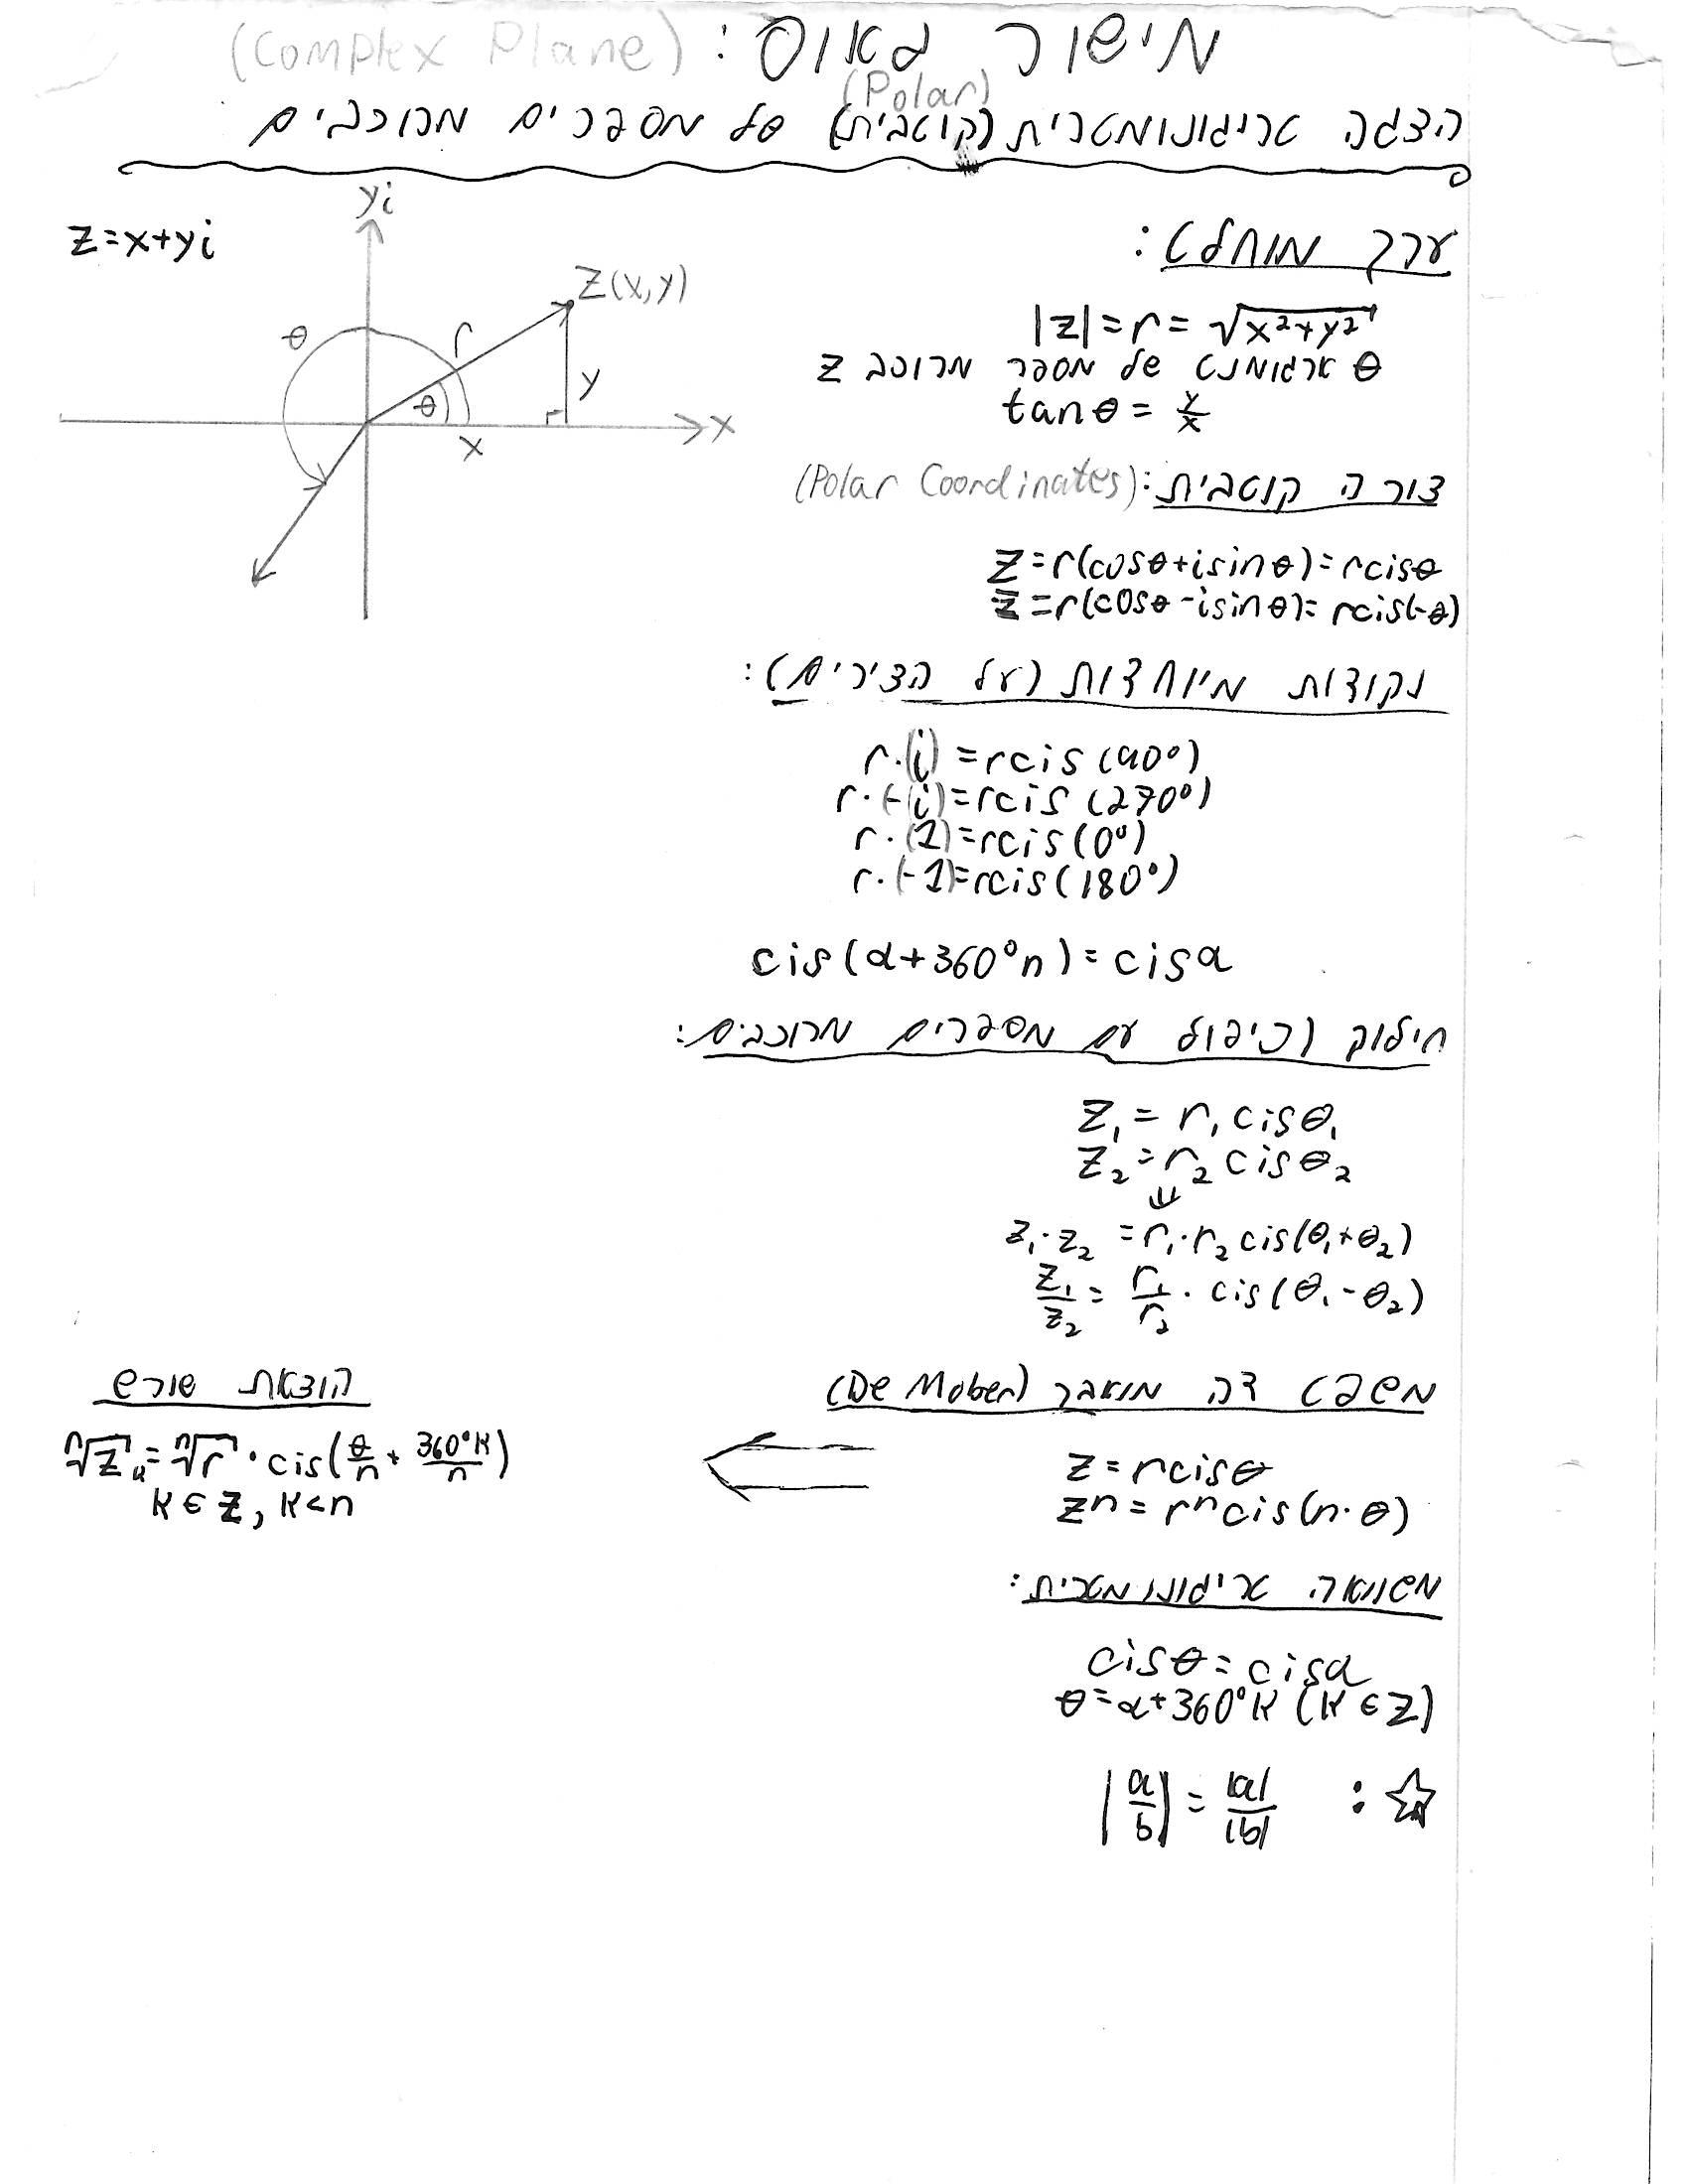 מישור גאוס: (Complex Plane)
הצגה טריגונומטרית (קוטבית) (Polar) של מספרים מרוכבים
z=x+yi
yi
Z(x,y)
θ
r
y
θ
x
x
ערך מוחלט:
|z|=r=√(x²+y²)
θ ארגומנט של מספר מרוכב z
tanθ = y/x
צורה קוטבית: (Polar Coordinates)
z=r(cosθ+isinθ)=rcisθ
z̄=r(cosθ-isinθ)=rcis(-θ)
נקודות מיוחדות (על הצירים):
r·(i)=rcis(90°)
r·(-i)=rcis(270°)
r·(1)=rcis(0°)
r·(-1)=rcis(180°)
cis(α+360°n)=cisα
חילוק וכיפול עם מספרים מרוכבים:
z₁ = r₁cisθ₁
z₂ = r₂cisθ₂
⇓
z₁·z₂ = r₁·r₂cis(θ₁+θ₂)
z₁/z₂ = r₁/r₂ · cis(θ₁-θ₂)
משפט דה מואבר (De Mober)
z=rcisθ
zⁿ=rⁿcis(n·θ)
הוצאת שורש
ⁿ√z = ⁿ√r · cis(θ/n + 360°k/n)
k∈Z, k<n
משוואה טריגונומטרית:
cisθ=cisα
θ=α+360°k (k∈Z)
☆: |a/b| = |a|/|b|